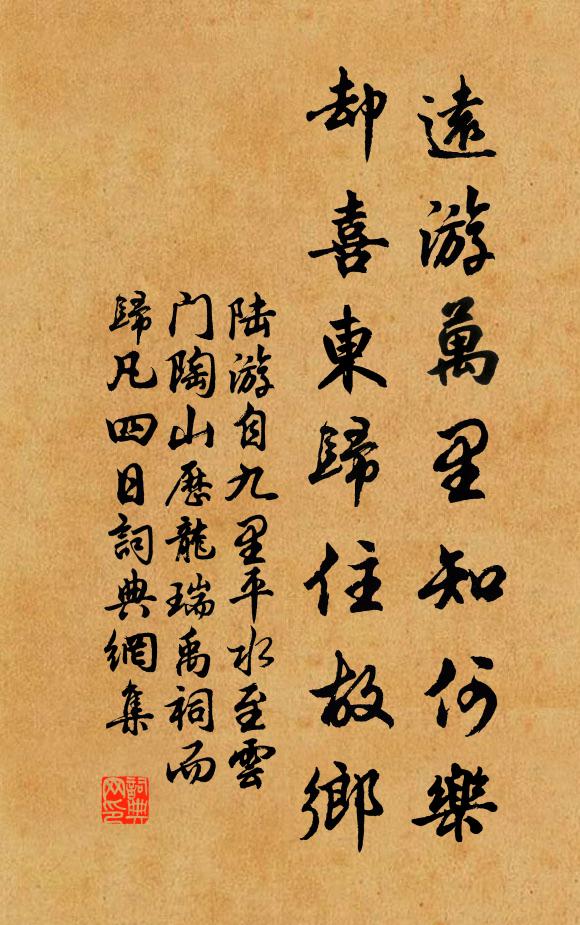 遠游萬里知何樂
却喜東歸住故鄉
陸游自九里平水至雲
門陶山歷龍瑞禹祠而
歸凡四日詞典網集
詞典网印